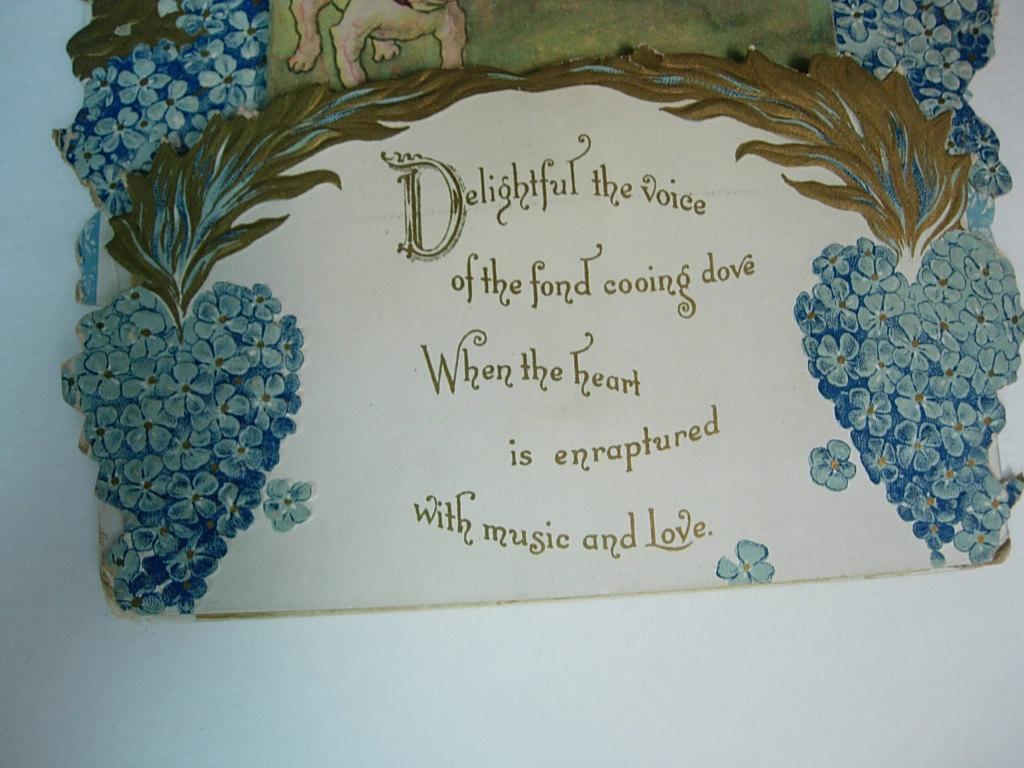 Delightful the voice
of the fond cooing dove
When the heart
is enraptured
with music and Love.